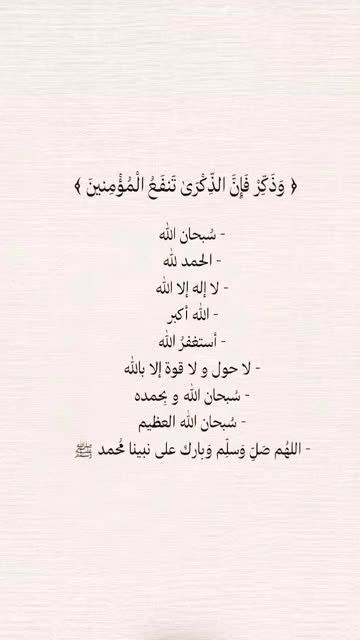 ﴿ وَذَكِّرْ فَإِنَّ الذِّكْرَىٰ تَنفَعُ الْمُؤْمِنِينَ ﴾
- سُبحان الله
- الحمد لله
- لا إله إلا الله
- الله أكبر
- أستغفرُ الله
- لا حول و لا قوة إلا بالله
- سُبحان الله و بِحمده
- سُبحان الله العظيم
- اللهُم صَلِّ وَسلِّم وَبارك على نبينا مُحمد ﷺ